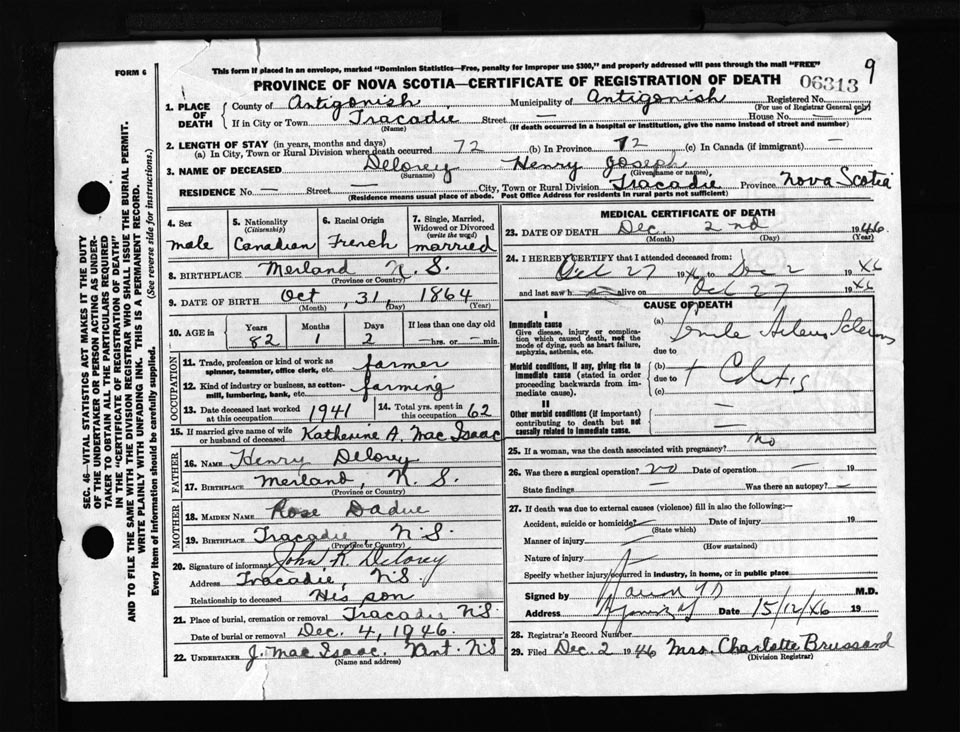 9
FORM 6
This form if placed in an envelope, marked "Dominion Statistics—Free, penalty for improper use $300," and properly addressed will pass through the mail "FREE"
PROVINCE OF NOVA SCOTIA—CERTIFICATE OF REGISTRATION OF DEATH
06313
1. PLACE OF DEATH
County of Antigonish Municipality of Antigonish Registered No.
(For use of Registrar General only)
If in City or Town Tracadie Street — House No. —
(Name) (If death occurred in a hospital or institution, give the name instead of street and number)
2. LENGTH OF STAY (in years, months and days)
(a) In City, Town or Rural Division where death occurred 72 (b) In Province 72 (c) In Canada (if immigrant) —
3. NAME OF DECEASED Delorey Henry Joseph
(Surname) (Given name or names)
RESIDENCE No. — Street — City, Town or Rural Division Tracadie Province Nova Scotia
(Residence means usual place of abode. Post Office Address for residents in rural parts not sufficient)
4. Sex
male
5. Nationality
(Citizenship)
Canadian
6. Racial Origin
French
7. Single, Married, Widowed or Divorced
(write the word)
married
8. BIRTHPLACE Merland N.S.
(Province or Country)
9. DATE OF BIRTH Oct, 31, 1864
(Month) (Day) (Year)
10. AGE in Years Months Days If less than one day old
82 1 2 —hrs. or —min.
OCCUPATION
11. Trade, profession or kind of work as spinner, teamster, office clerk, etc. farmer
12. Kind of industry or business, as cotton-mill, lumbering, bank, etc. farming
13. Date deceased last worked at this occupation 1941
14. Total yrs. spent in this occupation 62
15. If married give name of wife or husband of deceased Katherine A. Mac Isaac
FATHER
16. NAME Henry Delorey
17. BIRTHPLACE Merland, N.S.
(Province or Country)
MOTHER
18. MAIDEN NAME Rose Dadue
19. BIRTHPLACE Tracadie N.S.
(Province or Country)
20. Signature of informant John R. Delorey
Address Tracadie, N.S.
Relationship to deceased His son
21. Place of burial, cremation or removal Tracadie N.S.
Date of burial or removal Dec. 4, 1946.
22. UNDERTAKER J. Mac Isaac. N.S
(Name and address)
MEDICAL CERTIFICATE OF DEATH
23. DATE OF DEATH Dec. 2nd 1946
(Month) (Day) (Year)
24. I HEREBY CERTIFY that I attended deceased from:
Oct 27 1946 to Dec 2 1946
and last saw h alive on Oct 27 1946
CAUSE OF DEATH
I
Immediate cause
Give disease, injury or complication which caused death, not the mode of dying, such as heart failure, asphyxia, asthenia, etc.
(a)
due to
Morbid conditions, if any, giving rise to immediate cause (stated in order proceeding backwards from immediate cause).
(b)
due to
(c)
II
Other morbid conditions (if important) contributing to death but not causally related to immediate cause.
25. If a woman, was the death associated with pregnancy? no
26. Was there a surgical operation? no Date of operation — 19
State findings — Was there an autopsy? —
27. If death was due to external causes (violence) fill in also the following:—
Accident, suicide or homicide? Date of injury 19
(State which)
Manner of injury
(How sustained)
Nature of injury
Specify whether injury occurred in industry, in home, or in public place
Signed by M.D.
Address Date 15/12/46 19
28. Registrar's Record Number
29. Filed Dec. 2 1946 Mrs. Charlotte Brussard
(Division Registrar)
SEC. 46—VITAL STATISTICS ACT MAKES IT THE DUTY OF THE UNDERTAKER OR PERSON ACTING AS UNDERTAKER TO OBTAIN ALL THE PARTICULARS REQUIRED IN THE "CERTIFICATE OF REGISTRATION OF DEATH" AND TO FILE THE SAME WITH THE DIVISION REGISTRAR WHO SHALL ISSUE THE BURIAL PERMIT.
WRITE PLAINLY WITH UNFADING INK. THIS IS A PERMANENT RECORD.
Every item of Information should be carefully supplied. (See reverse side for instructions.)